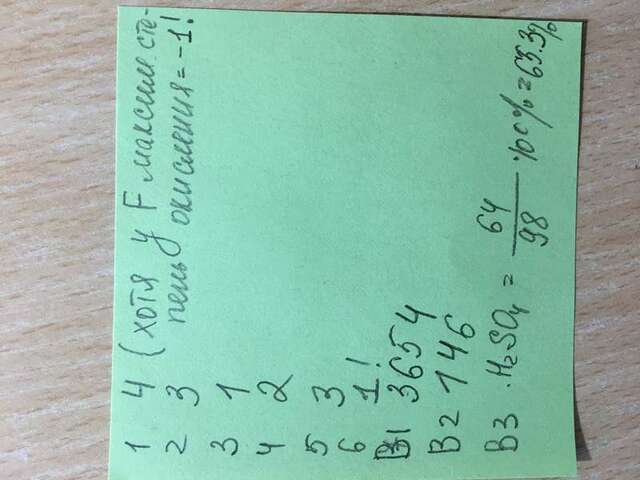 1 4 (хотя у F максим. сте-
2 3 пень окисления = -1!
3 1
4 2
5 3
6 1!
B1 3654
B2 146
B3 . H₂SO₄ = 64/98 · 100% = 65.3%